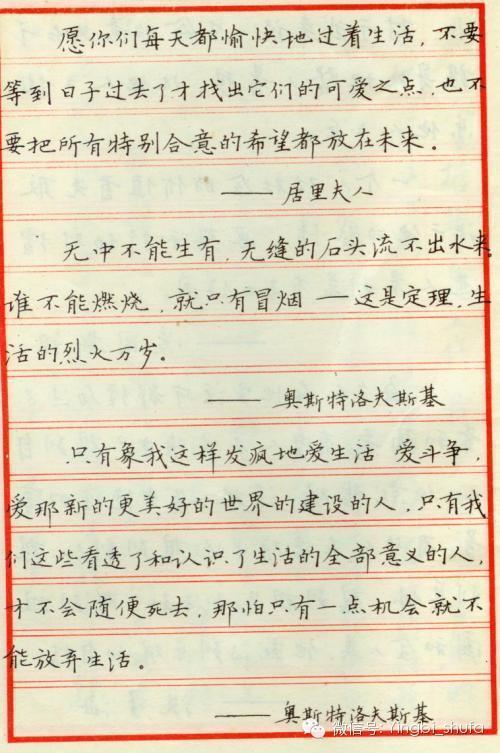 愿你们每天都愉快地过着生活，不要
等到日子过去了才找出它们的可爱之点，也不
要把所有特别合意的希望都放在未来。
—— 居里夫人
无中不能生有，无缝的石头流不出水来。
谁不能燃烧，就只有冒烟 — 这是定理，生
活的烈火万岁。
—— 奥斯特洛夫斯基
只有象我这样发疯地爱生活 爱斗争，
爱那新的更美好的世界的建设的人，只有我
们这些看透了和认识了生活的全部意义的人，
才不会随便死去，那怕只有一点机会就不
能放弃生活。
—— 奥斯特洛夫斯基
微信号: Yingbi_shufa